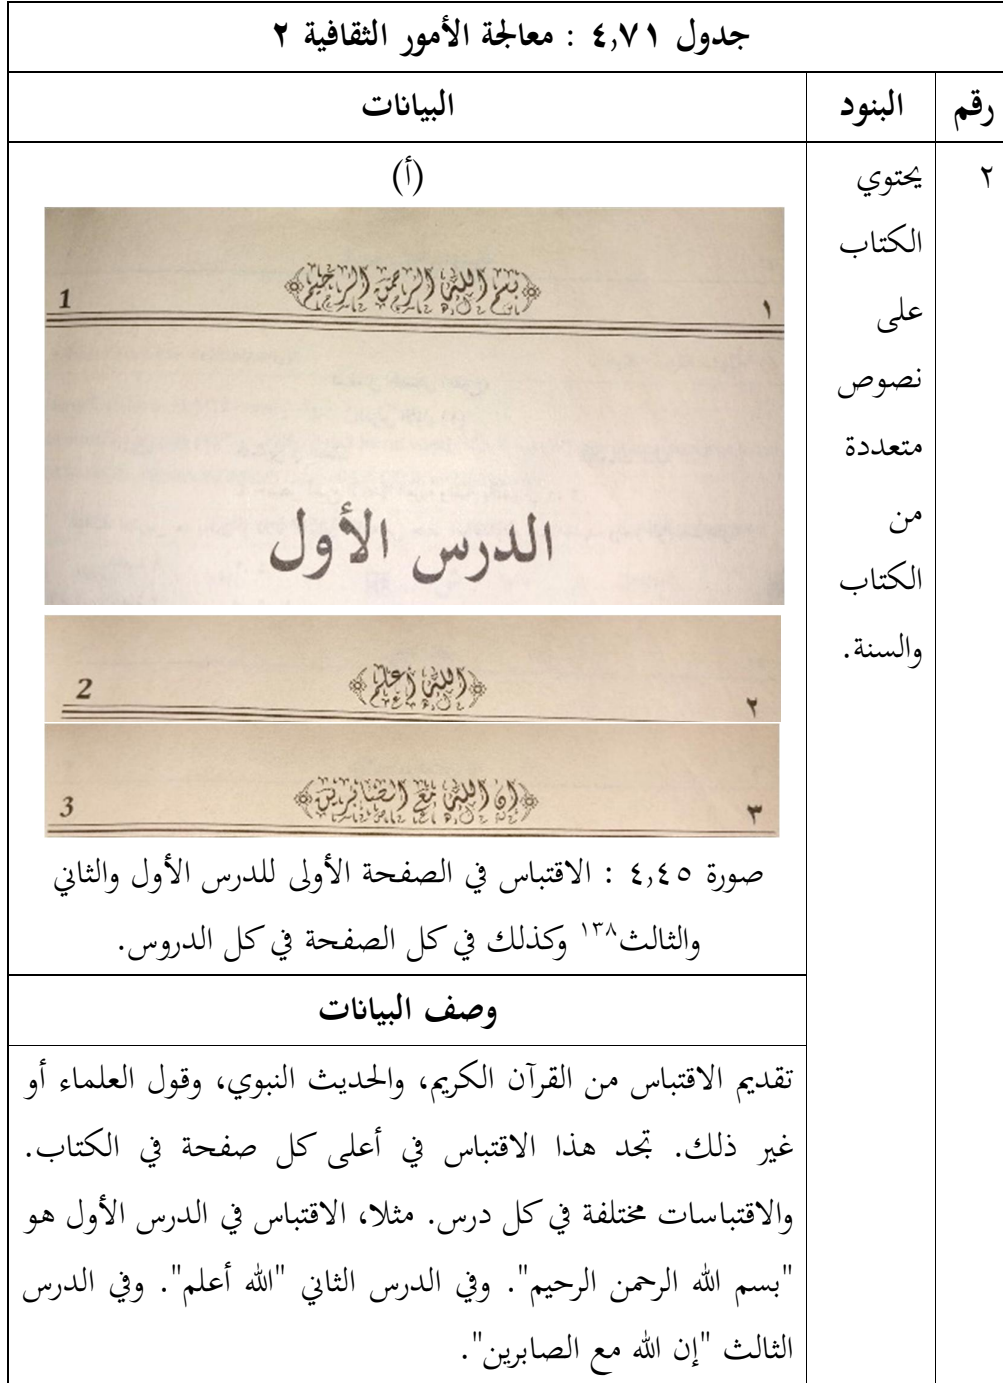 جدول ٤,٧١ : معالجة الأمور الثقافية ٢
رقم
البنود
البيانات
٢
يحتوي
الكتاب
على
نصوص
متعددة
من
الكتاب
والسنة.
(أ)
١ بسم الله الرحمن الرحيم 1
الدرس الأول
٢ الله أعلم 2
٣ إن الله مع الصابرين 3
صورة ٤,٤٥ : الاقتباس في الصفحة الأولى للدرس الأول والثاني
والثالث١٣٨ وكذلك في كل الصفحة في كل الدروس.
وصف البيانات
تقديم الاقتباس من القرآن الكريم، والحديث النبوي، وقول العلماء أو
غير ذلك. تجد هذا الاقتباس في أعلى كل صفحة في الكتاب.
والاقتباسات مختلفة في كل درس. مثلا، الاقتباس في الدرس الأول هو
"بسم الله الرحمن الرحيم". وفي الدرس الثاني "الله أعلم". وفي الدرس
الثالث "إن الله مع الصابرين".